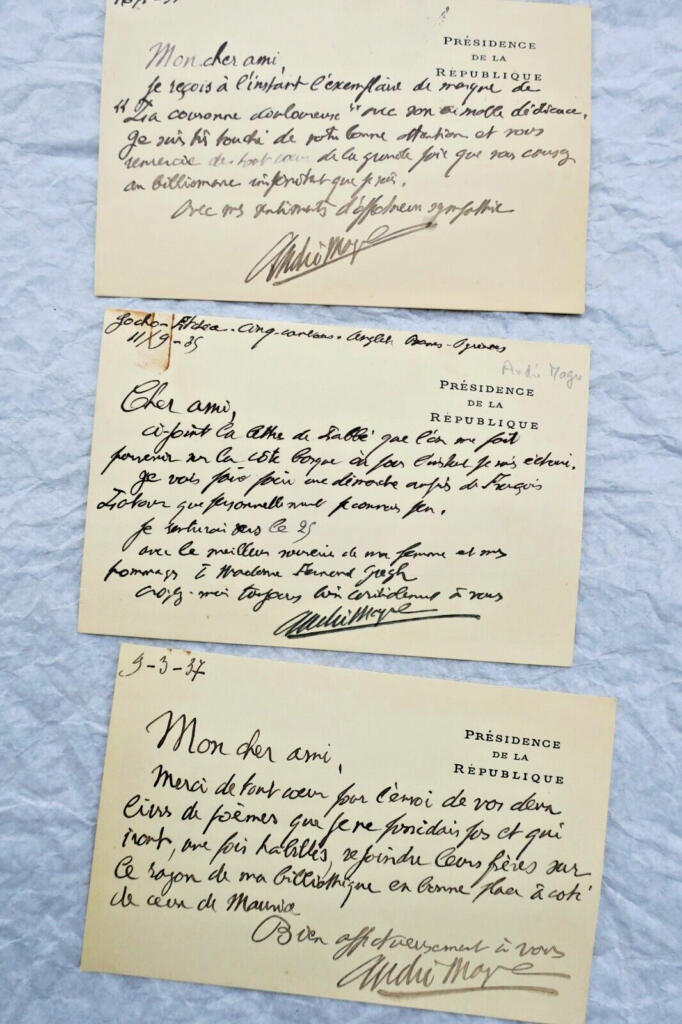 PRÉSIDENCE
DE LA
RÉPUBLIQUE
Mon cher ami,
Je reçois à l'instant l'exemplaire de marque de
"La couronne douloureuse" avec son aimable dédicace.
Je suis très touché de votre bonne attention et vous
remercie de tout coeur de la grande joie que vous causez
au bibliomane impénitent que je suis.
Avec mes sentiments d'affectueuse sympathie
André Magre
11/9-35
André Magre
PRÉSIDENCE
DE LA
RÉPUBLIQUE
Cher ami,
ci-joint la lettre de Labbé que l'on me fait
parvenir sur la côte basque où pour l'instant je suis
Je vais faire faire une démarche auprès de François
Latour que personnellement je connais peu.
Je rentrerai vers le 25
avec le meilleur souvenir de ma femme et mes
hommages à Madame Fernand Gregh
croyez-moi toujours bien cordialement à vous
André Magre
9-3-37
PRÉSIDENCE
DE LA
RÉPUBLIQUE
Mon cher ami,
Merci de tout coeur pour l'envoi de vos deux
livres de poèmes que je ne possédais pas et qui
iront, une fois habillés, rejoindre leurs frères sur
le rayon de ma bibliothèque en bonne place à coté
de ceux de Maurice
Bien affectueusement à vous
André Magre